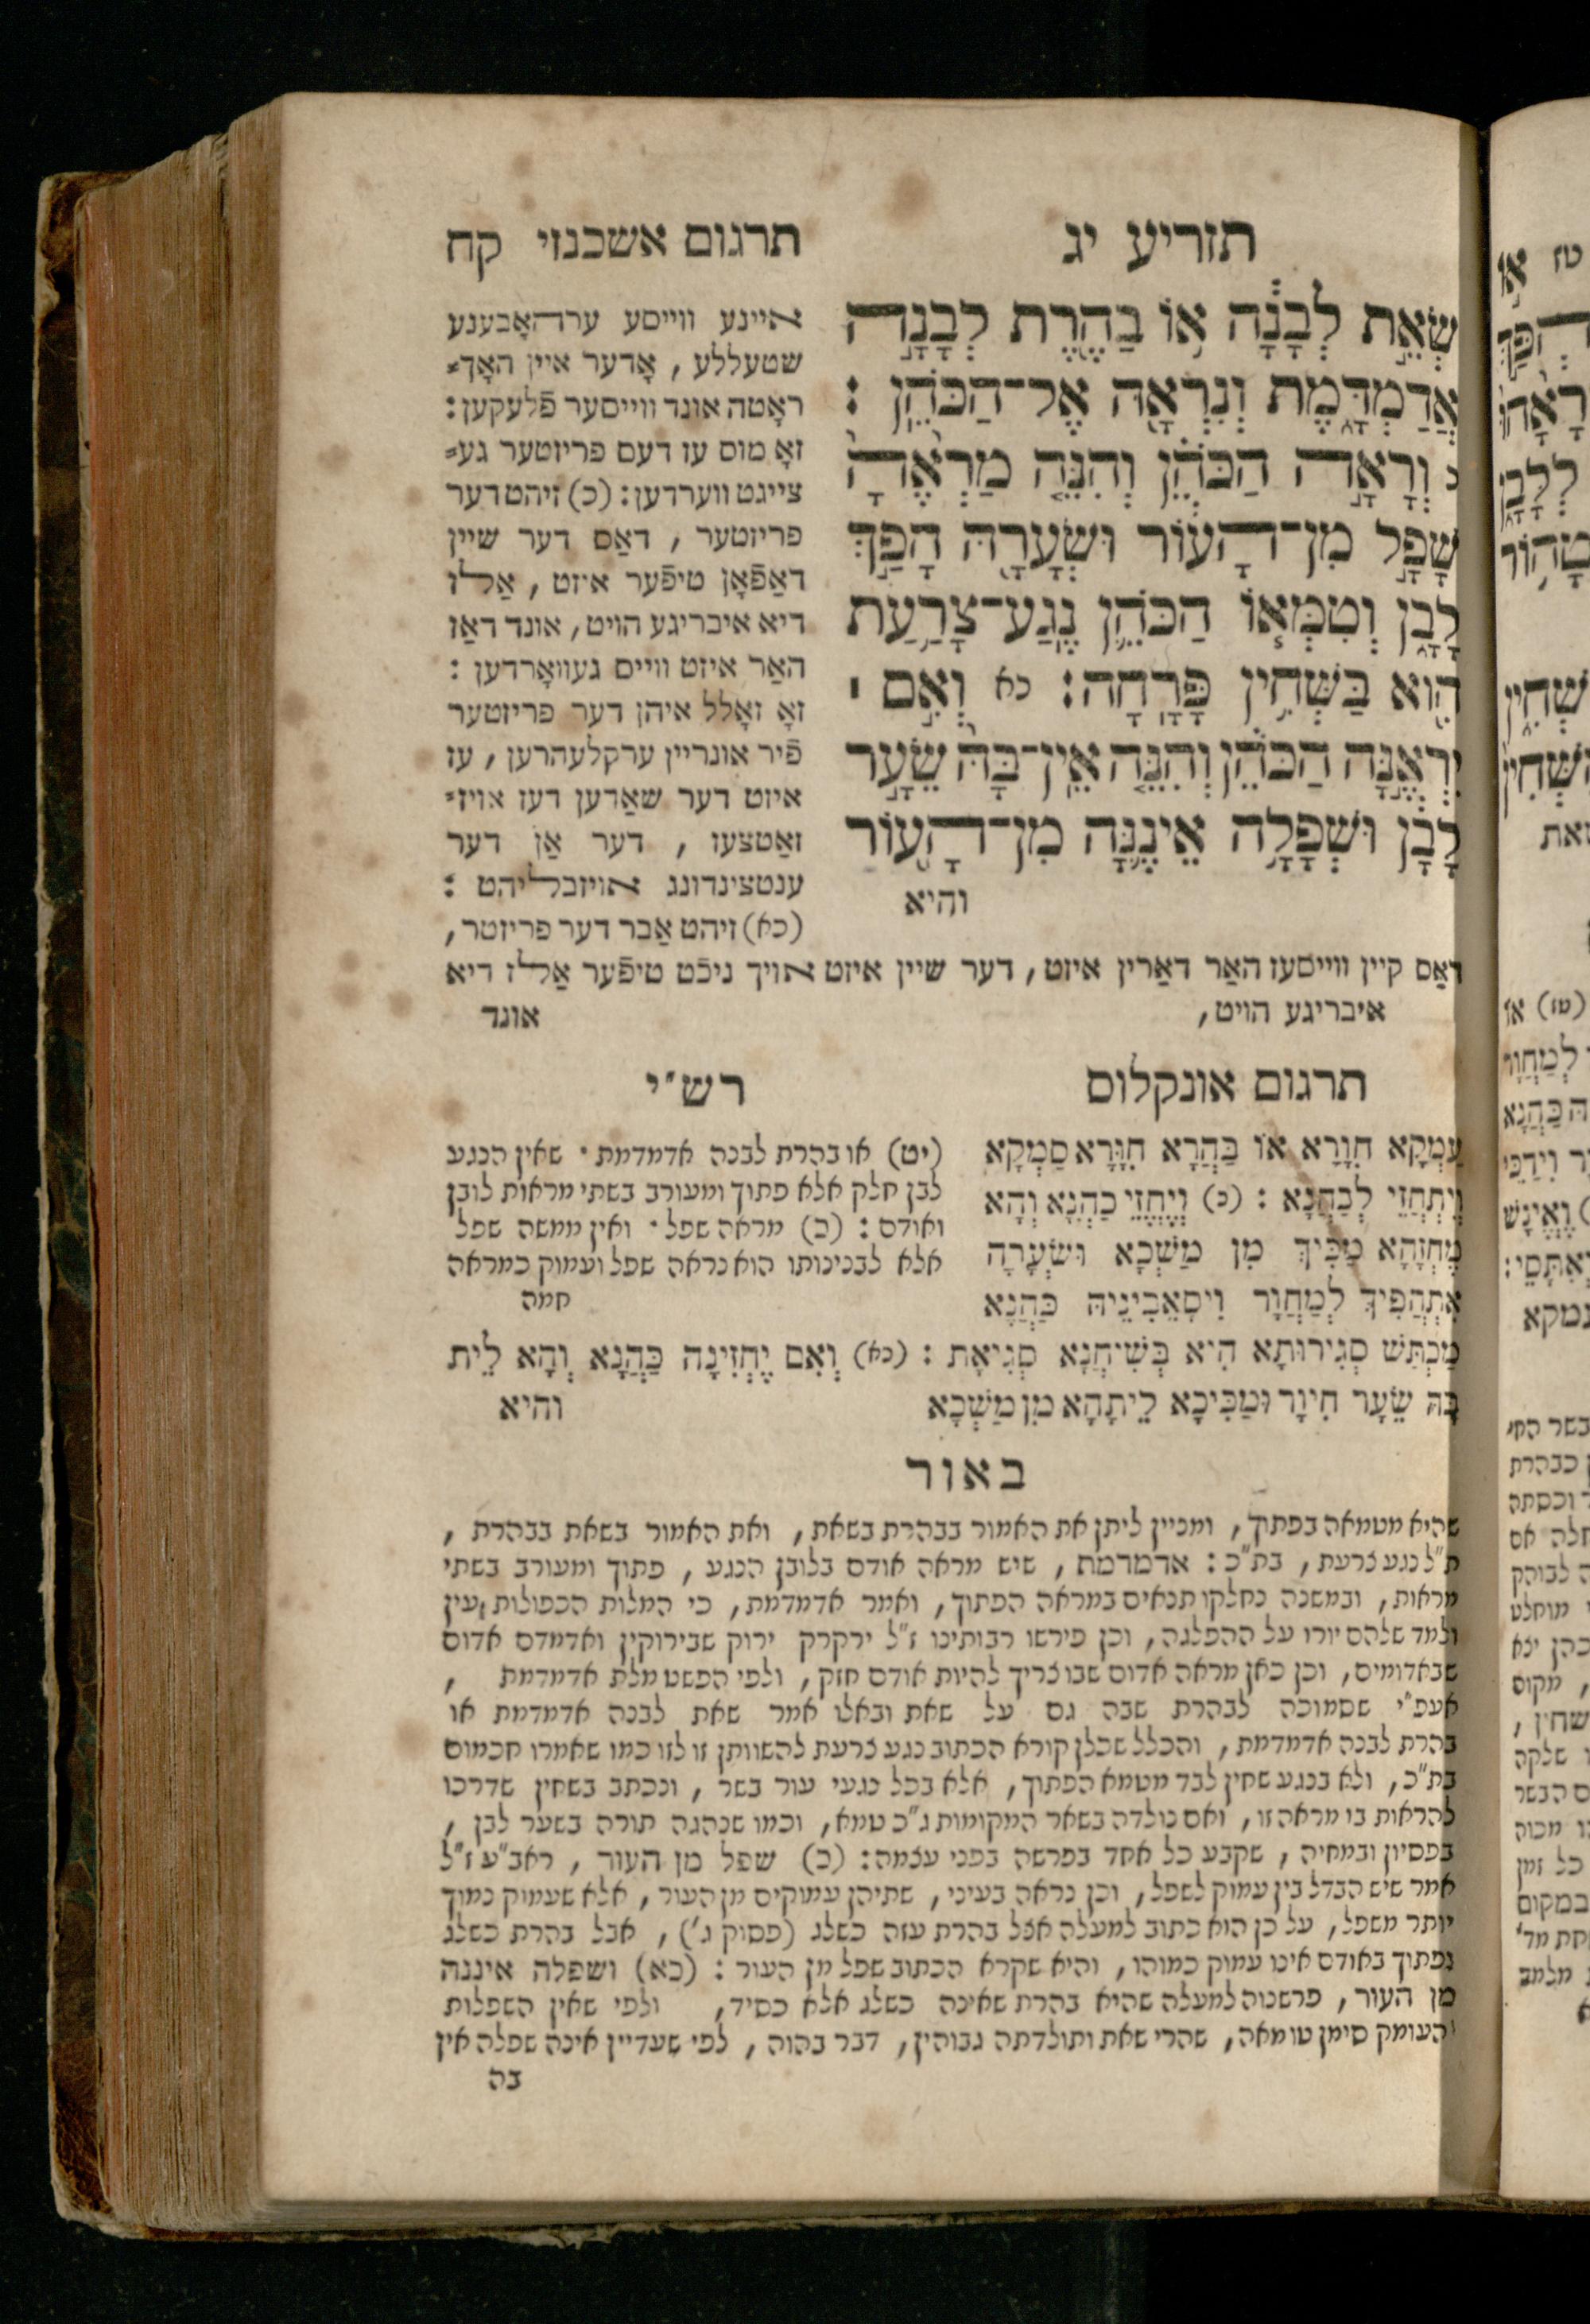 תזריע יג
תרגום אשכנזי קח
שְׂאֵ֣ת לְבָנָ֔ה א֥וֹ בַהֶ֛רֶת לְבָנָ֣ה
אֲדַמְדָּ֑מֶת וְנִרְאָ֖ה אֶל־הַכֹּהֵֽן :
כ וְרָאָ֣ה הַכֹּהֵ֗ן וְהִנֵּ֤ה מַרְאֶ֙הָ֙
שָׁפָ֣ל מִן־הָע֔וֹר וּשְׂעָרָ֖הּ הָפַ֣ךְ
לָבָ֑ן וְטִמְּא֧וֹ הַכֹּהֵ֛ן נֶֽגַע־צָרַ֥עַת
הִ֖וא בַּשְּׁחִ֥ין פָּרָֽחָה: כא וְאִ֣ם ׀
יִרְאֶ֣נָּה הַכֹּהֵ֗ן וְהִנֵּ֤ה אֵֽין־בָּהּ֙ שֵׂעָ֣ר
לָבָ֔ן וּשְׁפָלָ֥ה אֵינֶ֛נָּה מִן־הָע֖וֹר
והיא
איינע ווייסע ערהאָבענע
שטעללע , אָדער איין האָך⸗
ראָטה אונד ווייסער פֿלעקען:
זאָ מוס עז דעם פריזטער גע⸗
צייגט ווערדען: (כ) זיהט דער
פריזטער , דאַס דער שיין
דאַפֿאָן טיפֿער איזט , אַלז
דיא איבריגע הויט, אונד דאַז
האַר איזט ווייס געוואָרדען :
זאָ זאָלל איהן דער פריזטער
פֿיר אונריין ערקלעהרען , עז
איזט דער שאַדען דעז אויז⸗
זאַטצעז , דער אַן דער
ענטצינדונג אויזבליהט :
(כא) זיהט אַבר דער פריזטר,
דאַס קיין ווייסעז האַר דאַרין איזט, דער שיין איזט אויך ניכֿט טיפֿער אַלז דיא
איבריגע הויט, אונד
תרגום אונקלוס
עַמְקָא חִוָרָא אוֹ בַּהֲרָא חִוָּרָא סַמְקָא
וְיִתְחֲזֵי לְכַהֲנָא : (כ) וְיֶחֱזֵי כַהֲנָא וְהָא
מֶחְזָהָא מַכִּיךְ מִן מַשְׁכָא וּשְׂעָרָהּ
אִתְהֲפִיךְ לְמִחֲוָר וִיסָאֲבִינֵיהּ כַּהֲנָא
מַכְתַּשׁ סְגִירוּתָא הִיא בְּשִׁיחֲנָא סְגִיאָת : (כא) וְאִם יֶחֱזִינָהּ כַּהֲנָא וְהָא לֵית
בָּהּ שֵׂעָר חִיוָר וּמַכִּיכָא לֵיתָהָא מִן מַשְׁכָא והיא
רש״י
(יט) או בהרת לבנה אדמדמת · שאין הנגע
לבן חלק אלא פתוך ומעורב בשתי מראות לובן
ואודם : (כ) מראה שפל · ואין ממשה שפל
אלא לבנינותו הוא נראה שפל ועמוק כמראה
חמה
באור
שהיא מטמאה בפתוך, ומניין ליתן את האמור בבהרת בשאת, ואת האמור בשאת בבהרת ,
ת״ל נגע צרעת, בת״כ : אדמדמת , שיש מראה אודם בלובן הנגע , פתוך ומעורב בשתי
מראות, ובמשנה נחלקו תנאים במראה הפתוך, ואמר אדמדמת, כי המלות הכפולות עין
ולמד שלהם יורו על ההפלגה, וכן פירשו רבותינו ז״ל ירקרק ירוק שבירוקין ואדמדם אדום
שבאדומים, וכן כאן מראה אדום שבו צריך להיות אודם חזק, ולפי הפשט מלת אדמדמת ,
אעפ״י שסמוכה לבהרת שבה גם על שאת ובאלו אמר שאת לבנה אדמדמת או
בהרת לבנה אדמדמת, והכלל שכלן קורא הכתוב נגע צרעת להשוותן זו לזו כמו שאמרו חכמים
בת״כ, ולא בנגע שחין לבד מטמא הפתוך, אלא בכל נגעי עור בשר , ונכתב בשחין שדרכו
להראות בו מראה זו, ואם נולדה בשאר המקומות ג״כ טמא, וכמו שנהגה תורה בשער לבן ,
בפסיון ובמחיה , שקבע כל אחד בפרשה בפני עצמה: (כ) שפל מן העור , ראב״ע ז״ל
אמר שיש הבדל בין עמוק לשפל, וכן נראה בעיני, שתיהן עמוקים מן העור, אלא שעמוק נמוך
יותר משפל, על כן הוא כתוב למעלה אצל בהרת עזה כשלג (פסוק ג׳) , אבל בהרת כשלג
נפתוך באודם אינו עמוק כמוהו, והיא שקרא הכתוב שפל מן העור : (כא) ושפלה איננה
מן העור, פרשנוה למעלה שהיא בהרת שאינה כשלג אלא כסיד, ולפי שאין השפלות
והעומק סימן טומאה, שהרי שאת ותולדתה גבוהין, דבר בהוה , לפי שעדיין אינה שפלה אין
בה